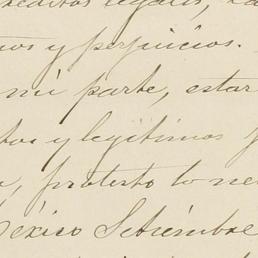 réditos legales,
y perjuicios.
mi parte, estar
y legitimos
, protesto lo ne
México Setiembre